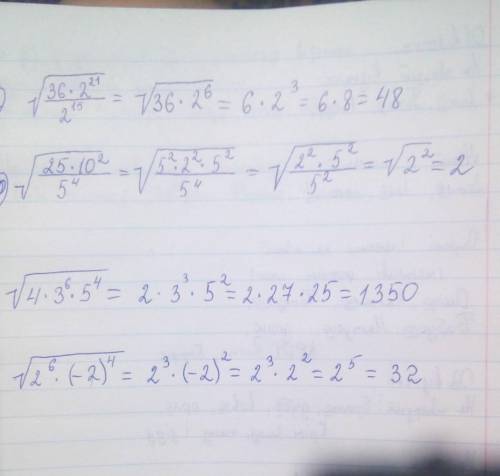 √(36·2²¹/2¹⁵) = √(36·2⁶) = 6·2³ = 6·8 = 48
√(25·10²/5⁴) = √(5²·2²·5²/5⁴) = √(2²·5²/5²) = √2² = 2
√(4·3⁶·5⁴) = 2·3³·5² = 2·27·25 = 1350
√(2⁶·(-2)⁴) = 2³·(-2)² = 2³·2² = 2⁵ = 32